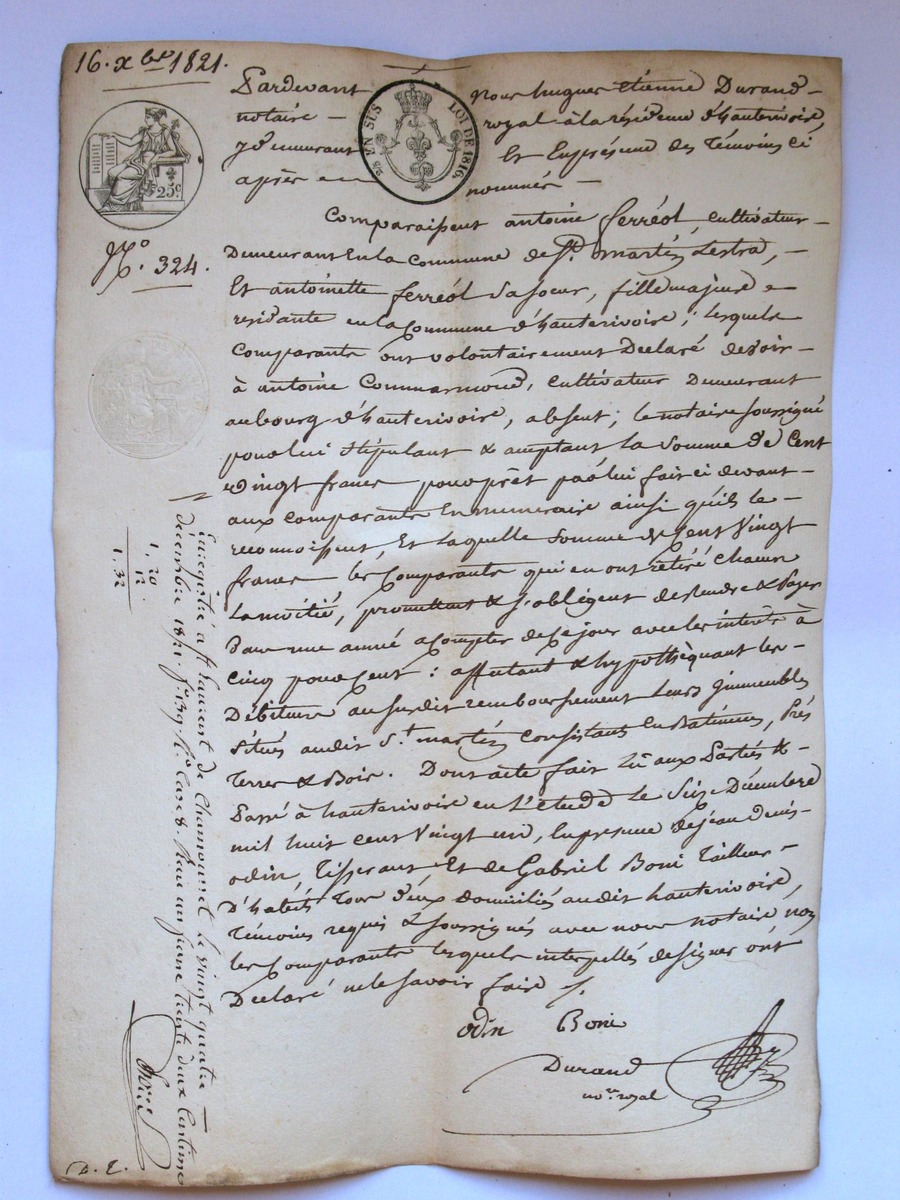 16. xbre 1821.
Pardevant nous hugues Étienne Durand
notaire royal à la résidence d'hauterivoire,
y demeurant Et En présence des Témoins ci
après nommés
EN SUS
LOI DE 1816.
25c
N.o 324.
Comparaissent antoine ferréol, cultivateur
Demeurant En la Commune de St. martin Lestra,
Et antoinette ferréol sa soeur, fille majeure
residante en la Commune d'hauterivoire; lesquels
Comparants ont volontairement Declaré devoir
à antoine Commarmond, cultivateur Demeurant
au bourg d'hauterivoire, absent; le notaire soussigné
pour lui stipulant & acceptant la Somme de Cent
Vingt francs pour prêt par lui fait ci devant
aux comparants En numeraire ainsi qu'ils le
reconnoissent, Et laquelle Somme de Cent Vingt
francs les Comparants qui en ont rétiré chacun
La moitié, promettent & s'obligent de Rendre & Payer
Dans une année a Compter de Ce jour avec les interêts à
Cinq pour Cent: affectant & hypothèquant les
Débiteurs au susdit remboursement leurs immeubles
Situés audit St. martin Consistant En Batiments, Prés
Terres & Bois. Dont acte fait Lû aux Parties &
Passé à hauterivoire en L'étude Le Seize Décembre
mil huit cent Vingt un, En présence de jean denis
odin, Tisserant, Et de Gabriel Boni Tailleur
D'habits Tous Deux domiciliés audit hauterivoire,
Témoins requis & soussignés avec nous notaire, non
les Comparants lesquels interpellés de signer ont
Declaré ne le Savoir faire
odin Boni
Durand
nore. royal
Enregistré a St Laurent de Chamousset le vingt quatre
decembre 1821. fo. 39 Ro. Case 8. Reçu un franc trente deux centimes
1, 20
12
1, 32
D. E.